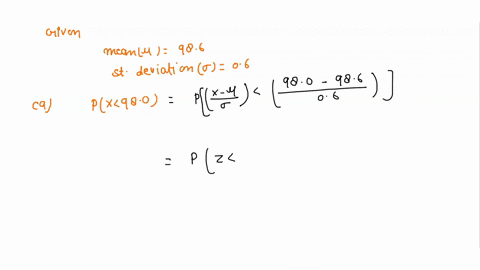 Given
mean(μ) = 98.6
st. deviation (σ) = 0.6
(a) P(x<98.0) = P[(x-μ/σ) < (98.0 - 98.6/0.6)]
= P(z<